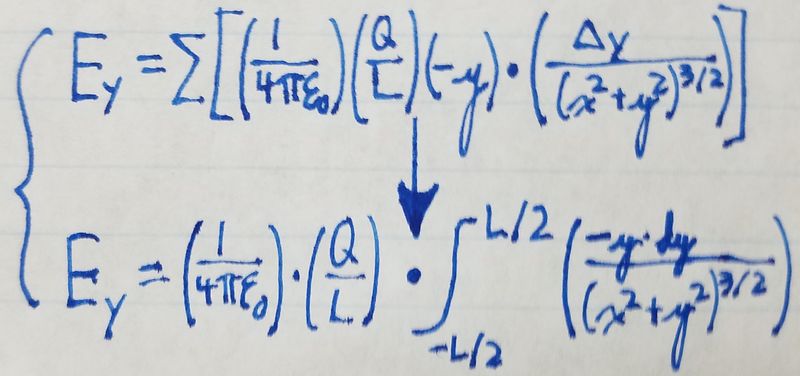 E_y = Σ[(1/4πε₀)(Q/L)(-y)•(Δy/(x²+y²)^3/2)]
E_y = (1/4πε₀)•(Q/L)•∫_{-L/2}^{L/2} (-y·dy/(x²+y²)^3/2)